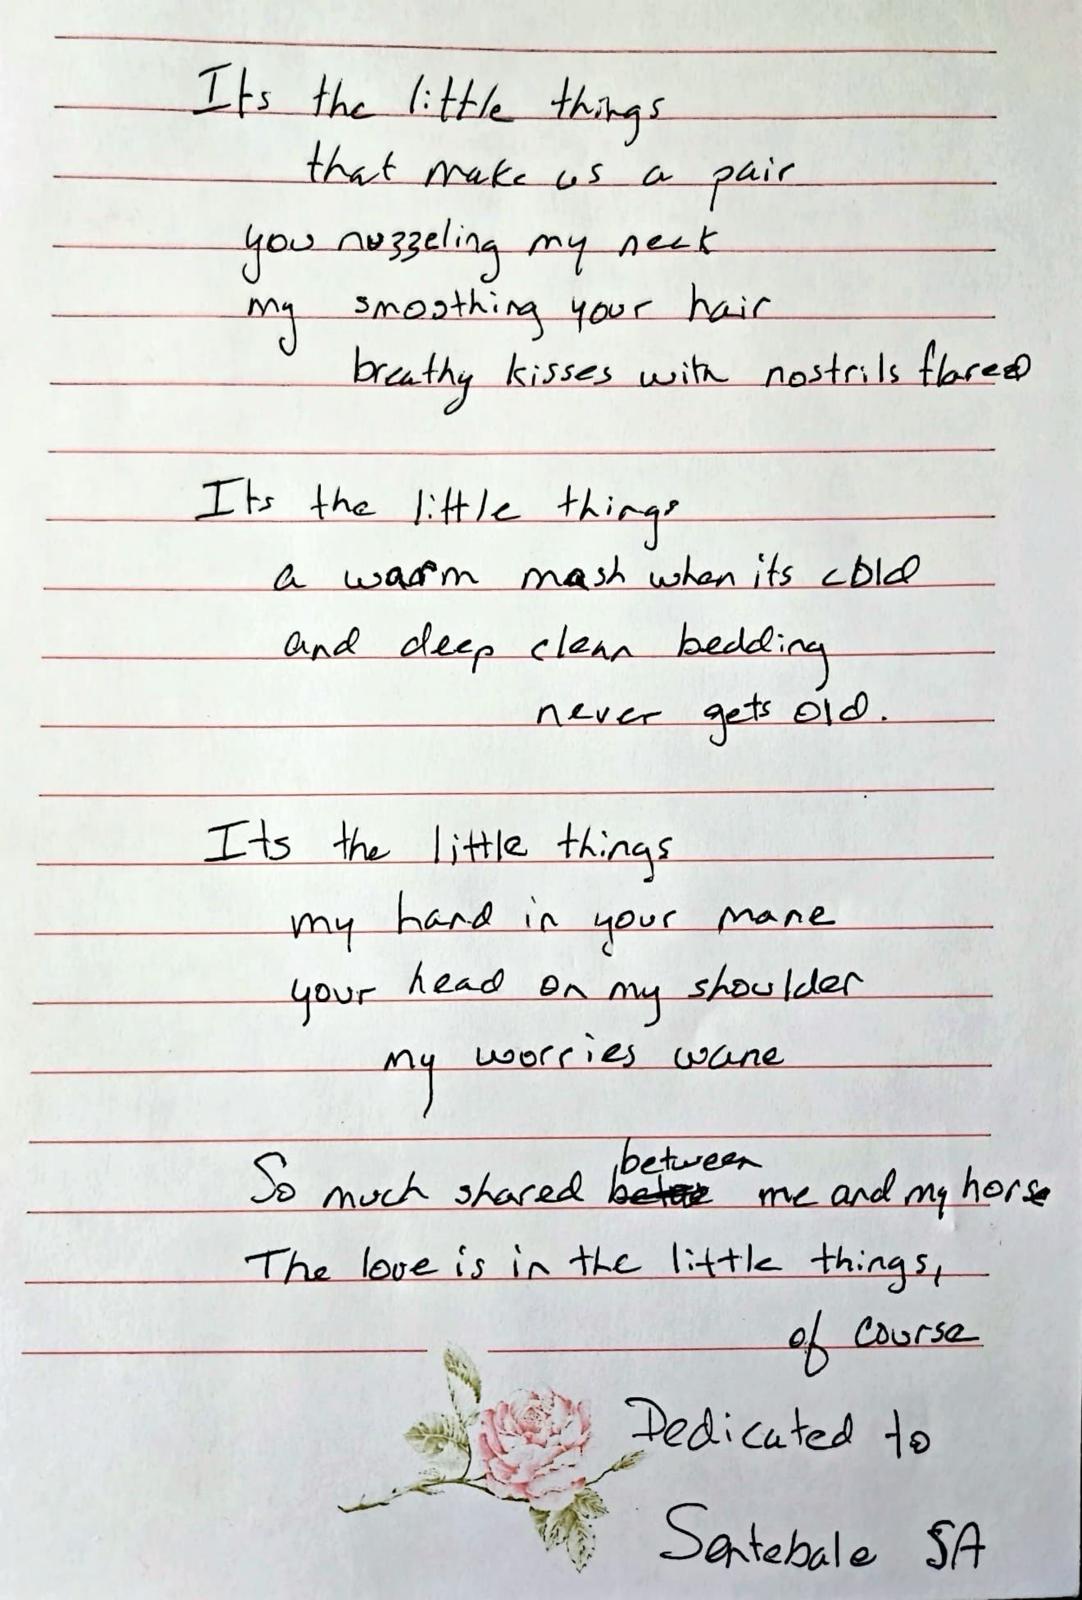 Its the little things
that make us a pair
you nuzzeling my neck
my smoothing your hair
breathy kisses with nostrils flared
Its the little things
a warm mash when its cold
and deep clean bedding
never gets old.
Its the little things
my hand in your mane
your head on my shoulder
my worries wane
between
So much shared me and my horse
The love is in the little things,
of course
Dedicated to
Sentebale SA